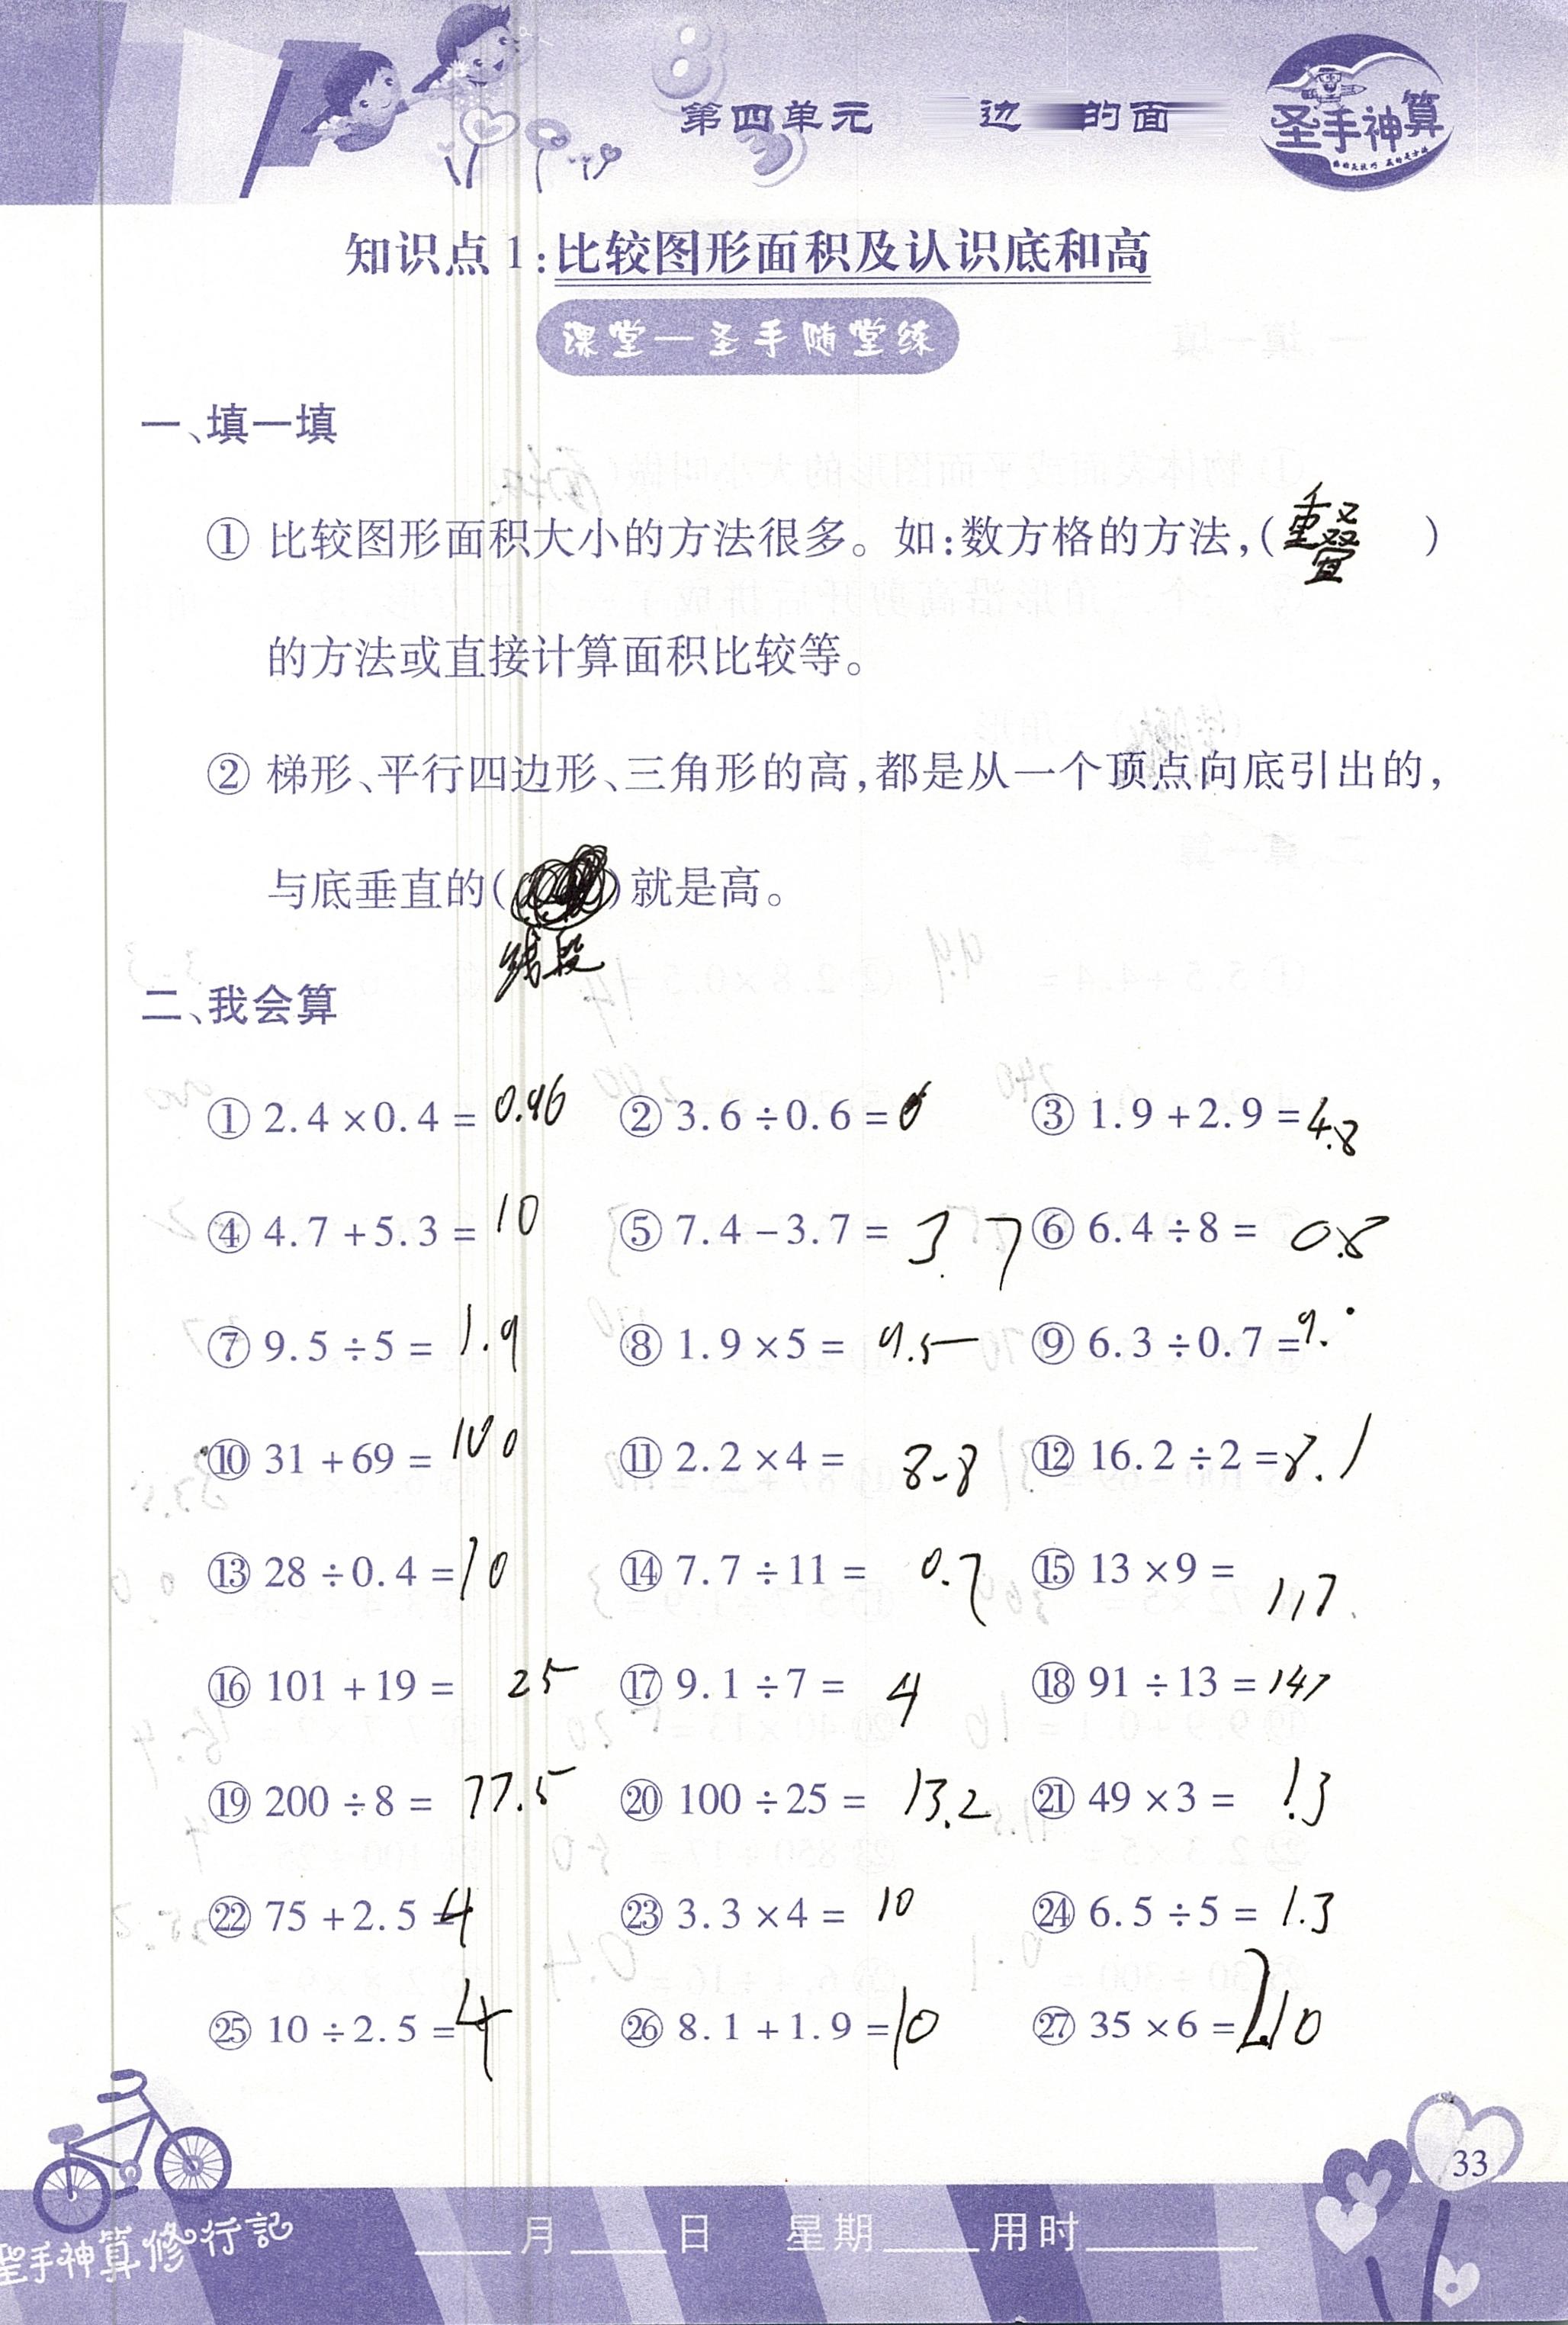 第四单元 边 的面
圣手神算
知识点1:比较图形面积及认识底和高
课堂—圣手随堂练
一、填一填
① 比较图形面积大小的方法很多。如:数方格的方法,(重叠)
的方法或直接计算面积比较等。
② 梯形、平行四边形、三角形的高,都是从一个顶点向底引出的,
与底垂直的( )就是高。
线段
二、我会算
① 2.4×0.4= 0.96 ② 3.6÷0.6= 6 ③ 1.9+2.9= 4.8
④ 4.7+5.3= 10 ⑤ 7.4-3.7= 3.7 ⑥ 6.4÷8= 0.8
⑦ 9.5÷5= 1.9 ⑧ 1.9×5= 9.5 ⑨ 6.3÷0.7= 9.
⑩ 31+69= 100 ⑪ 2.2×4= 8.8 ⑫ 16.2÷2= 8.1
⑬ 28÷0.4= 70 ⑭ 7.7÷11= 0.7 ⑮ 13×9= 117
⑯ 101+19= 25 ⑰ 9.1÷7= 4 ⑱ 91÷13= 147
⑲ 200÷8= 77.5 ⑳ 100÷25= 13.2 ㉑ 49×3= 1.3
㉒ 75+2.5= 4 ㉓ 3.3×4= 10 ㉔ 6.5÷5= 1.3
㉕ 10÷2.5= 4 ㉖ 8.1+1.9= 10 ㉗ 35×6= 210
33
聖手神算修行記
____月____日 星期____用时______